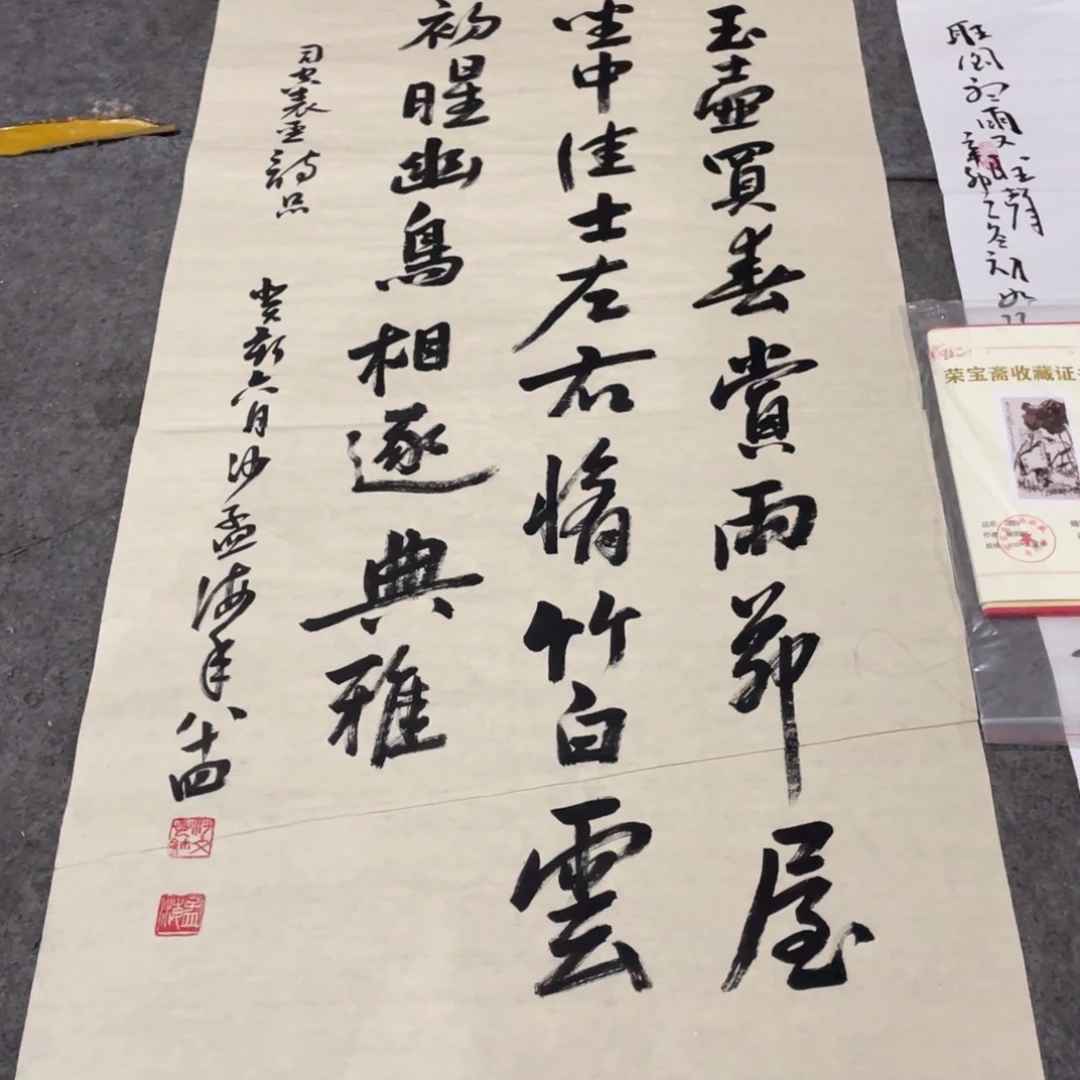 玉壺買春賞雨茆屋
坐中佳士左右脩竹白雲
初暒幽鳥相逐典雅
司空表聖詩品
癸亥六月沙孟海年八十四
荣宝斋收藏证
品名
作者